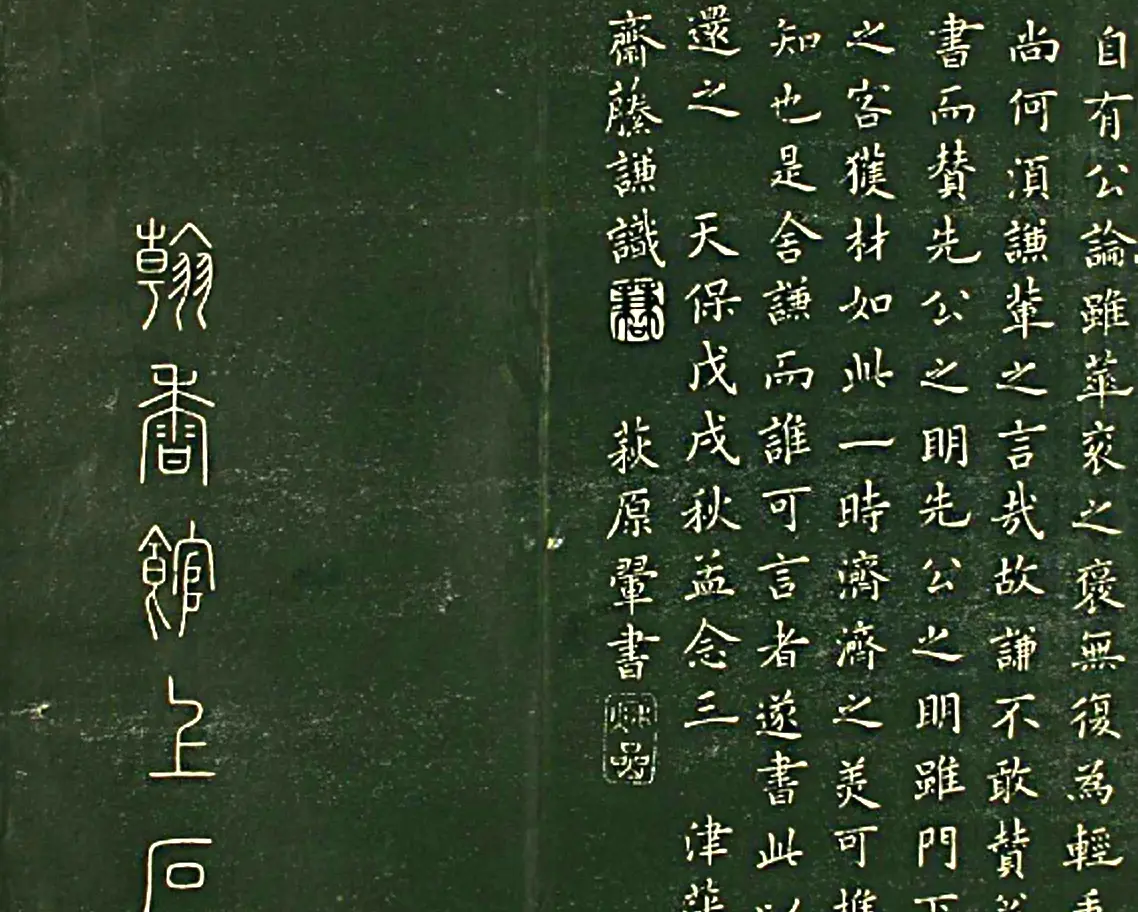 自有公論雖華袞之褒無復為輕重
尚何湏謙輩之言哉故謙不敢賛
書而賛先公之明先公之明雖門下
之客獲材如此一時濟濟之美可推
知也是舍謙而誰可言者遂書此以
還之　天保戊戌秋孟念三　津藩
齋藤謙識　萩原翬書
翰香館上石